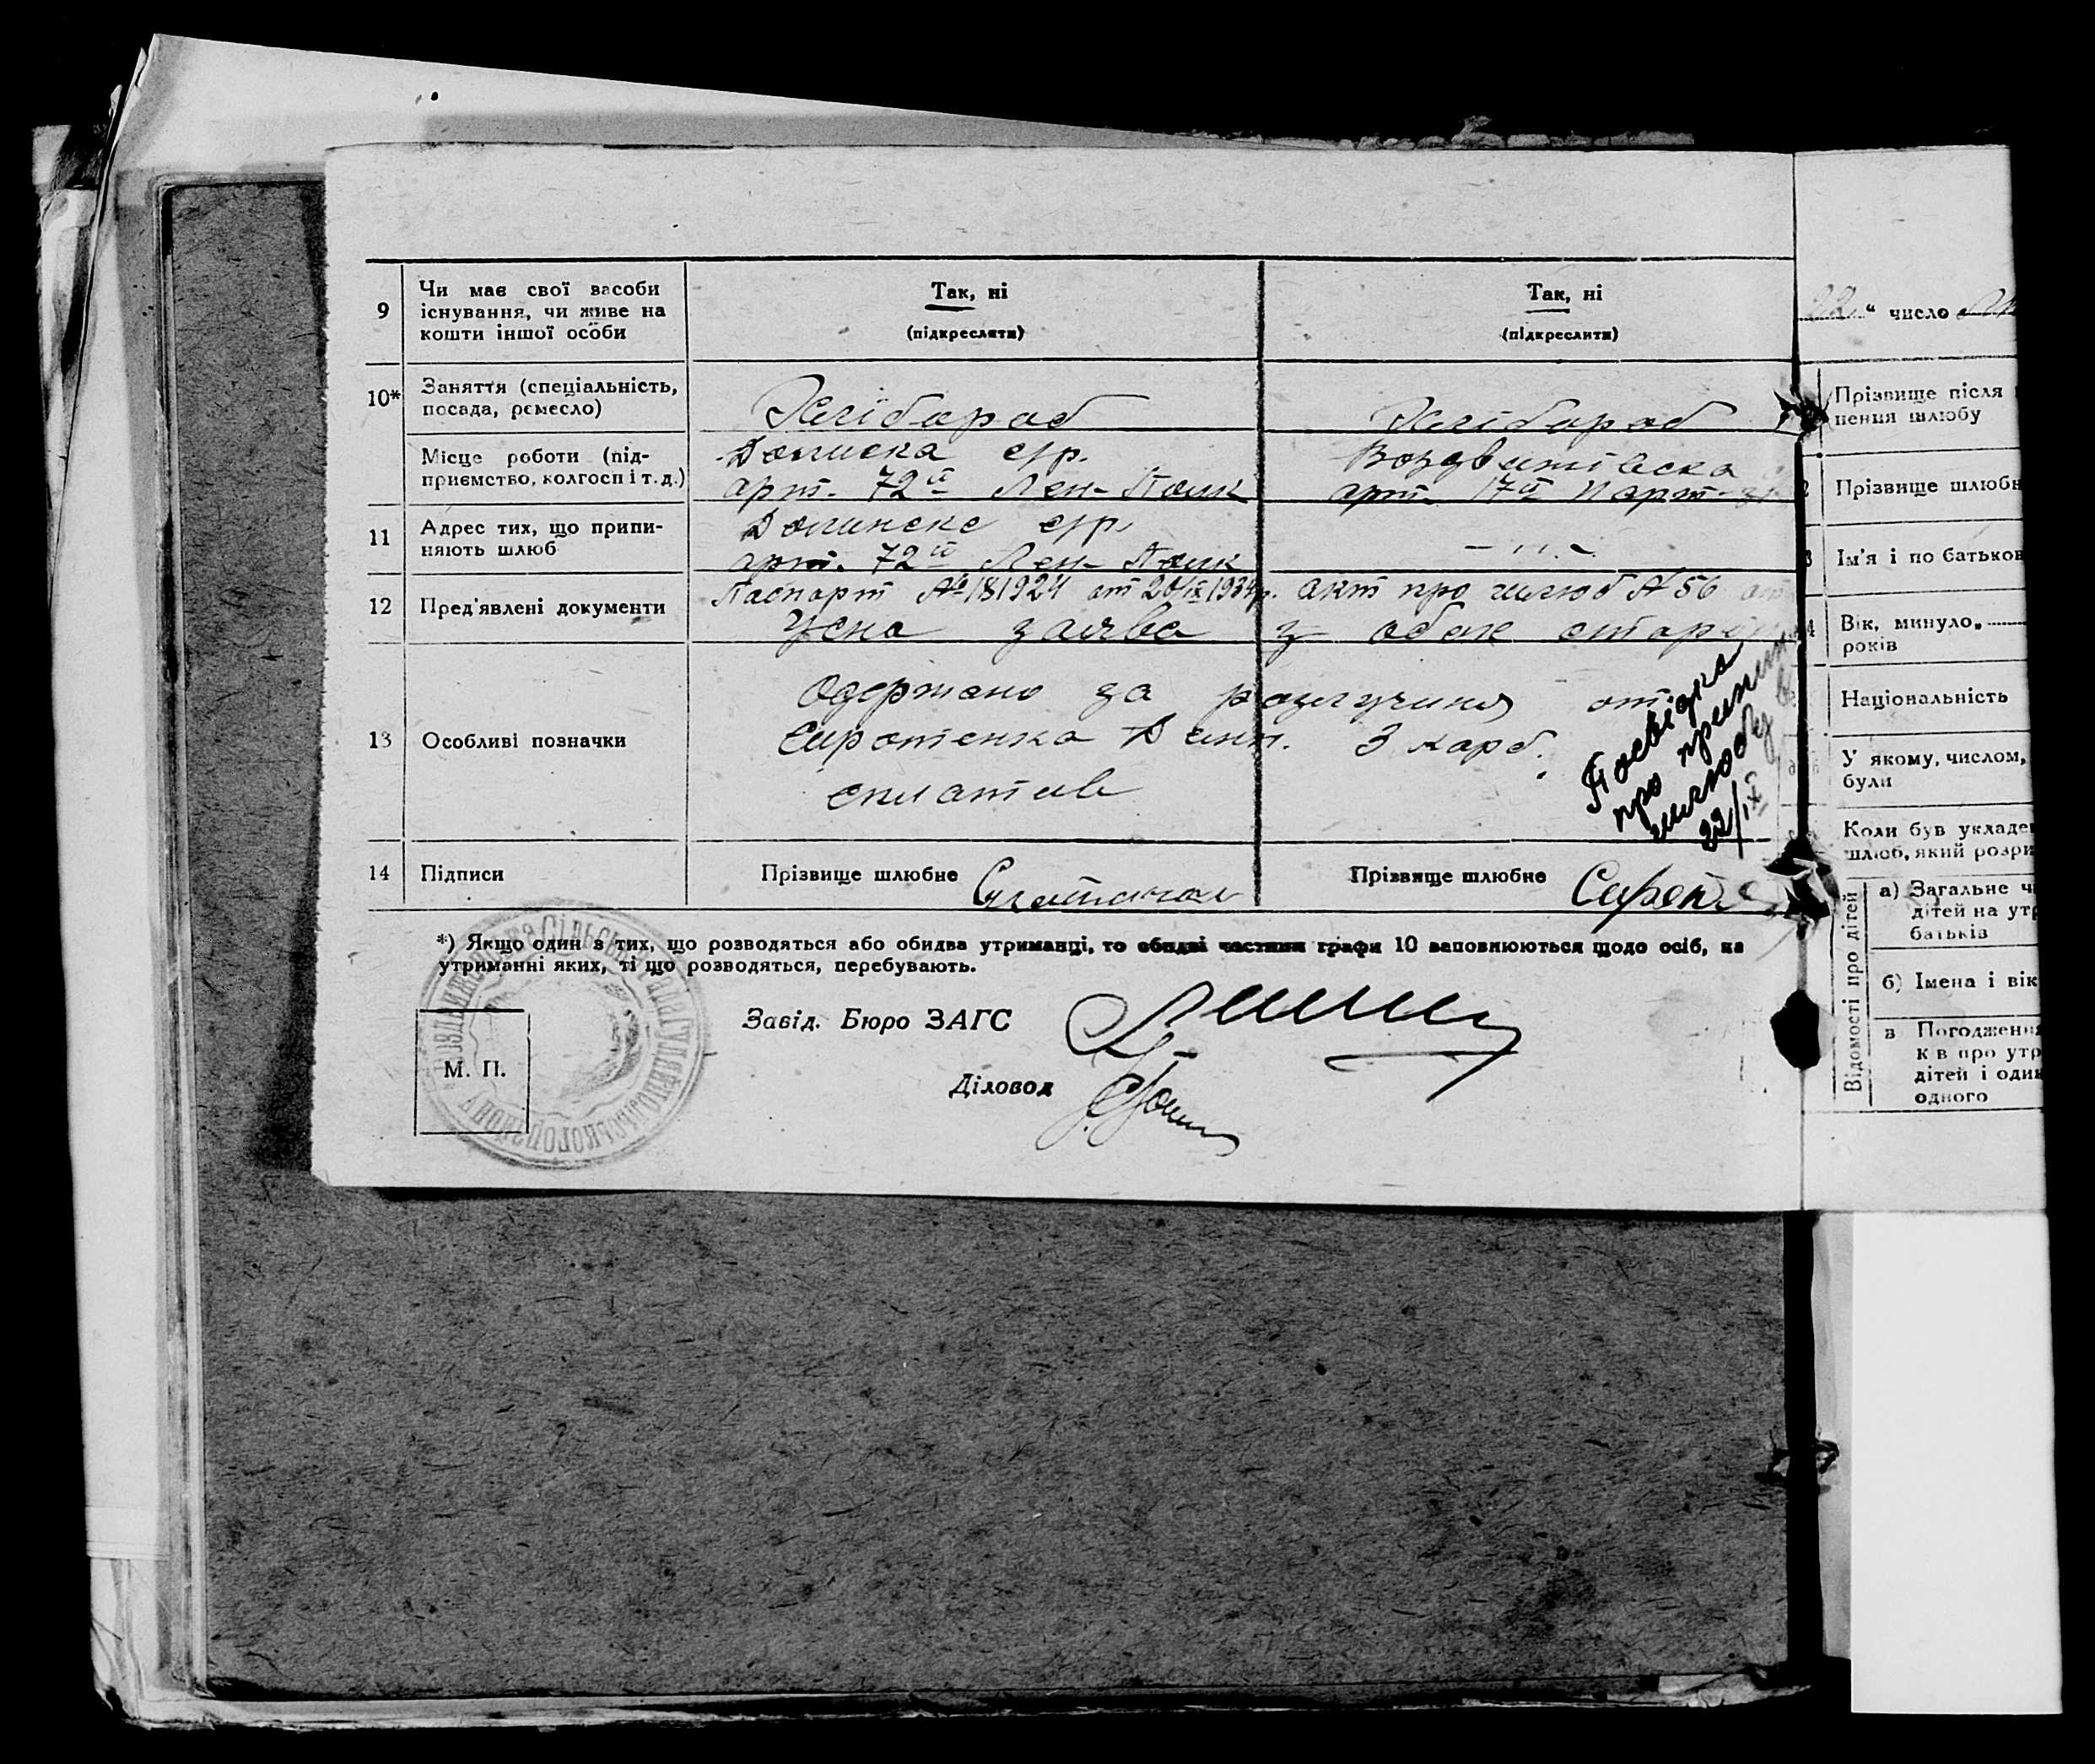 9 Чи має свої засоби
існування, чи живе на
кошти іншої особи
Так, ні
(підкреслити)
Так, ні
(підкреслити)
10* Заняття (спеціальність,
посада, ремесло)
Хлібороб
Хлібороб
Місце роботи (під-
приємство, колгосп і т. д.)
Долинска с/р.
арт. 72ї Лен- Полк
Воздвижівска
арт. 17ї Парт-
11 Адрес тих, що припи-
няють шлюб
Долинске с/р.
арт. 72ї Лен- Полк
– " –
12 Пред'явлені документи
Паспорт № 181924 от 20/IX 1934р. акт про шлюб № 56 от
Усна заява з обох сторін
13 Особливі позначки
Одержано за розлучиня от
Сиротенка 3 карб.
сплатив
Посвідка
про припин
шлюбу
22/IX
14 Підписи
Прізвище шлюбне
Прізвище шлюбне
*) Якщо один з тих, що розводяться або обидва утриманці, то обидві частини графи 10 заповнюються щодо осіб, на
утриманні яких, ті що розводяться, перебувають.
Завід. Бюро ЗАГС
Діловод
М. П.
22 " число
Прізвище після
нення шлюбу
Прізвище шлюбн
Ім'я і по батьков
Вік, минуло
років
Національність
У якому, числом,
були
Коли був укладен
шлюб, який розри
Відомості про дітей
а) Загальне ч
дітей на утр
батьків
б) Імена і вік
в Погодження
к в про утр
дітей і один
одного